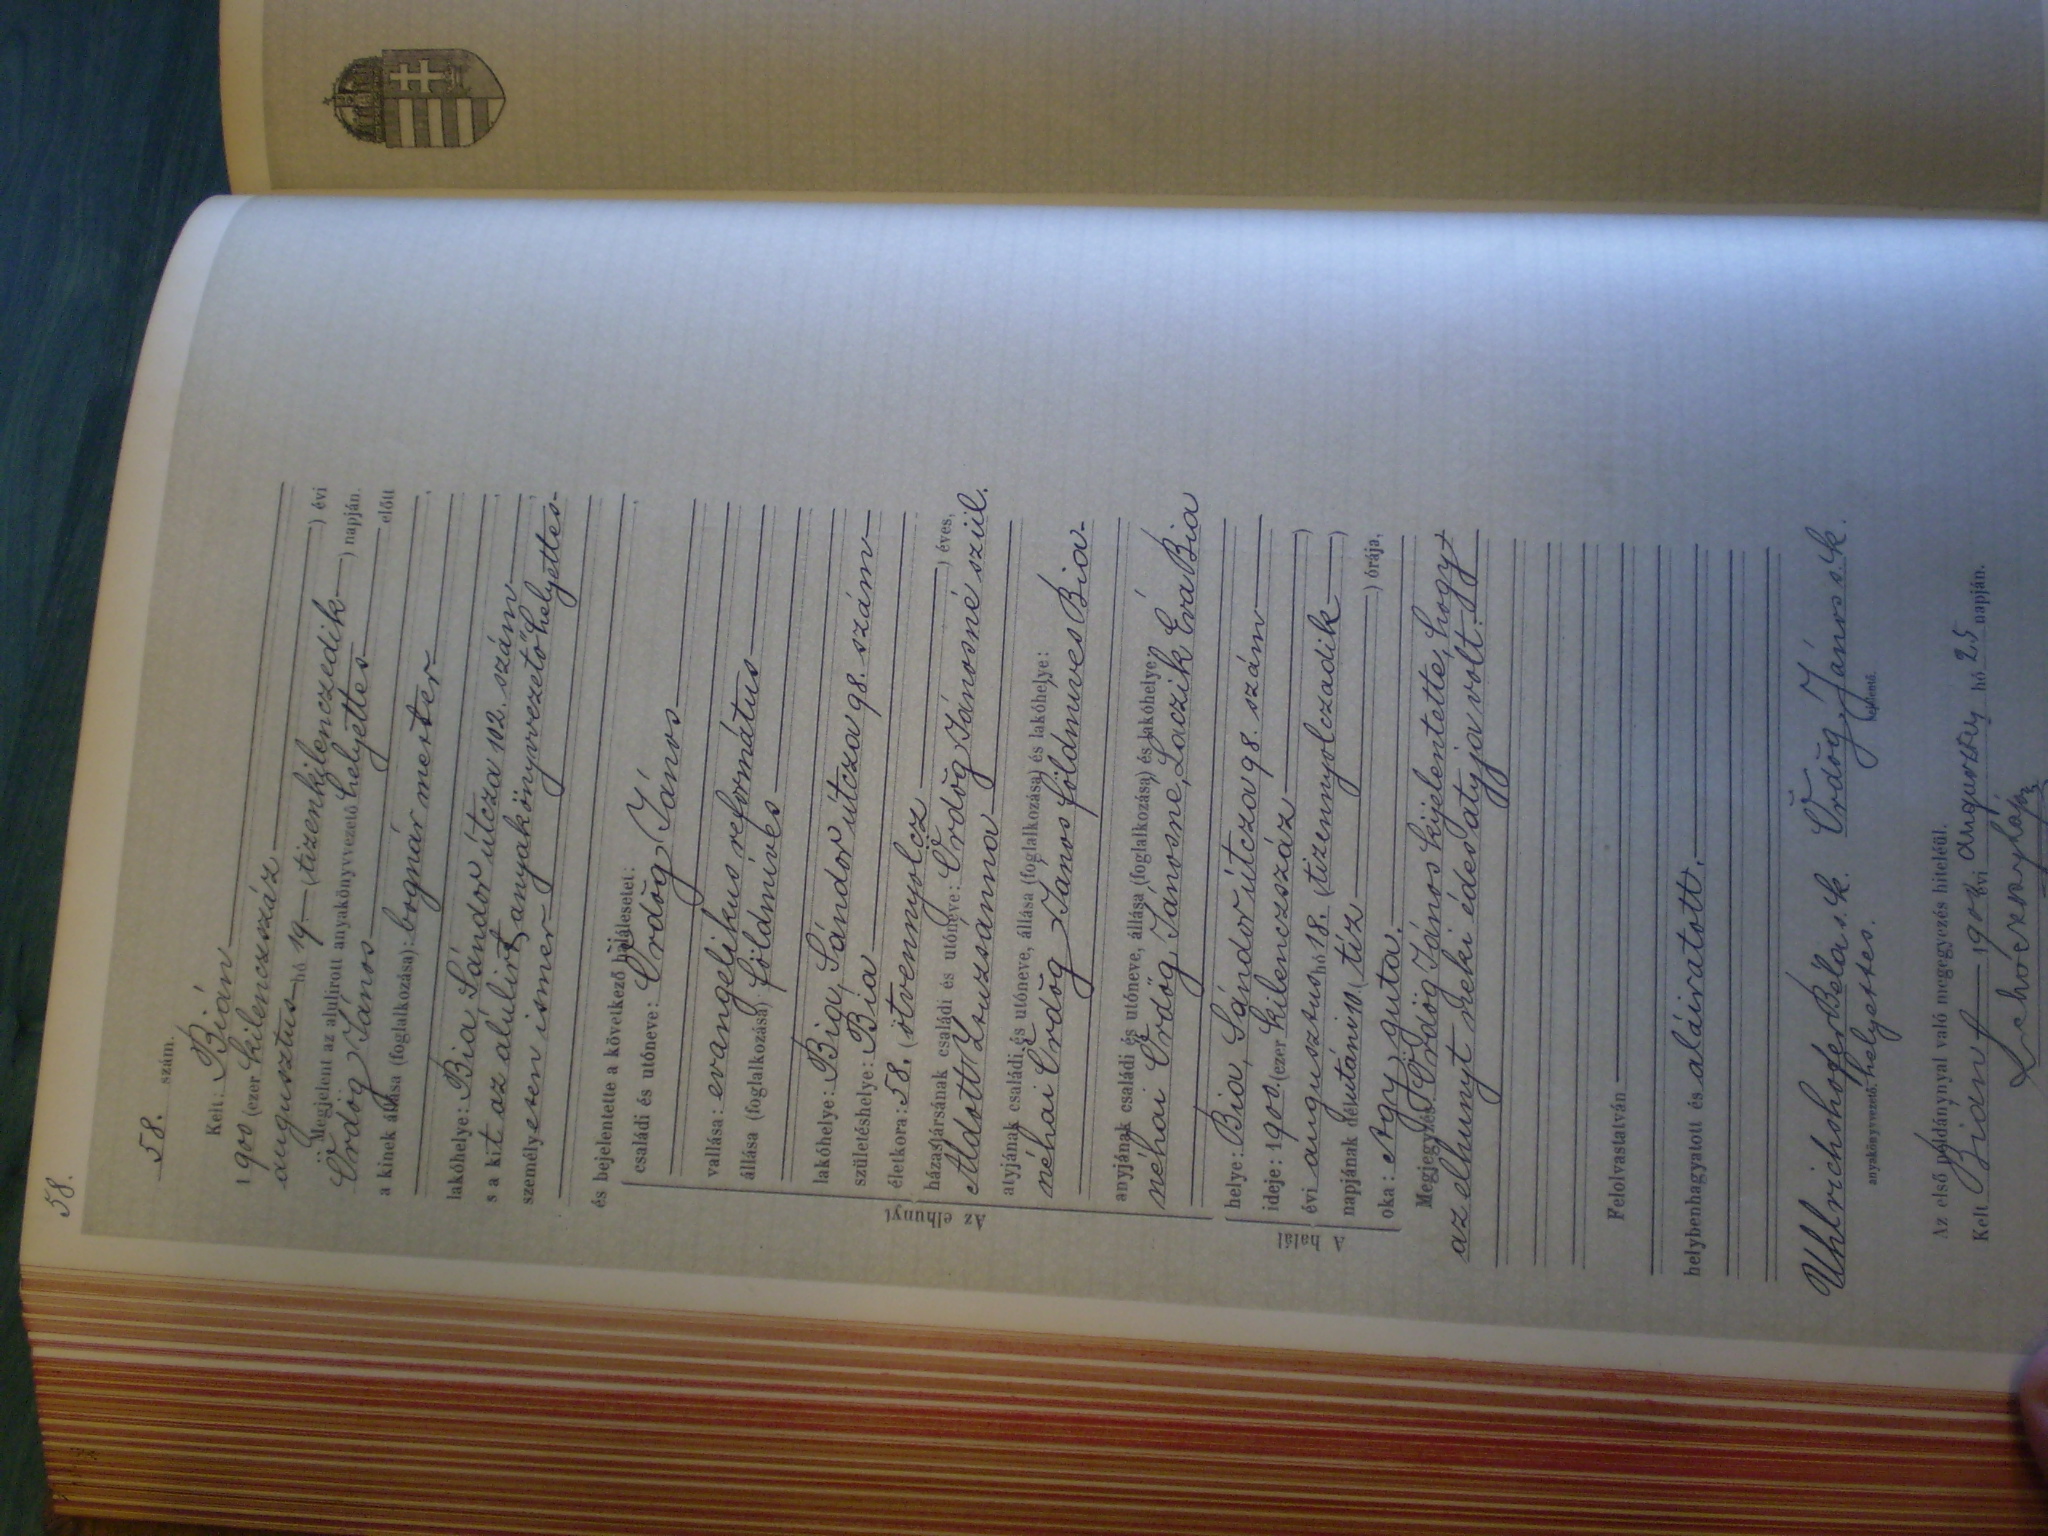 58.
58. szám.
Kelt: Bián
1900 (ezer kilenczszáz ) évi
augusztus hó 19. (tizenkilenczedik ) napján.
Megjelent az alulirott anyakönyvvezető helyettes előtt
Ördög János
a kinek állása (foglalkozása): bognár mester,
lakóhelye: Bia Sándor útcza 102. szám,
s a kit az alulirt anyakönyvvezető helyettes
személyesen ismer,
és bejelentette a következő halálesetet:
Az elhunyt
családi és utóneve: Ördög János,
vallása: evangelikus református
állása (foglalkozása): földmíves
lakóhelye: Bia, Sándor útcza 98. szám
születéshelye: Bia
életkora: 58. (ötvennyolcz ) éves,
házastársának családi és utóneve: Ördög Jánosné szül.
Aldott Zsuzsanna
atyjának családi és utóneve, állása (foglalkozása) és lakóhelye:
néhai Ördög János földmíves Bia
anyjának családi és utóneve, állása (foglalkozása) és lakóhelye:
néhai Ördög Jánosné, Laczik Éva Bia
A halál
helye: Bia, Sándor útcza 98. szám
ideje: 1900. (ezer kilenczszáz )
évi augusztus hó 18. (tizennyolczadik )
napjának délutáni 10. (tíz ) órája,
oka: Agy guta.
Megjegyzés: Ördög János kijelentette, hogy
az elhunyt neki édes atyja volt.
Felolvastatván
helybenhagyatott és aláiratott.
Uhlrichshofer Béla s. k. Ördög János s. k.
anyakönyvvezető helyettes. bejelentő.
Az első példánnyal való megegyezés hiteléül.
Kelt Bián 190 évi augusztus hó 25 napján.